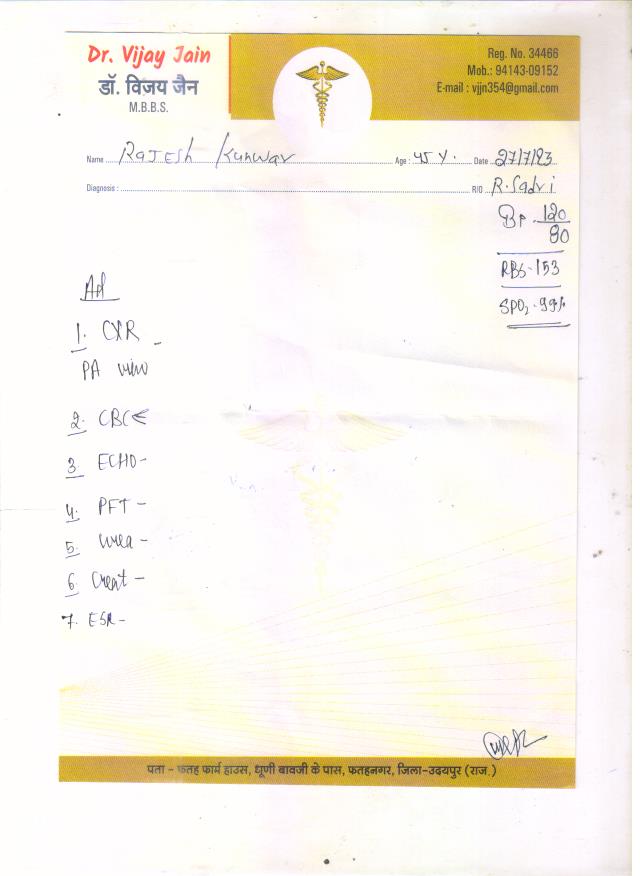 Dr. Vijay Jain
डॉ. विजय जैन
M.B.B.S.
Reg. No. 34466
Mob.: 94143-09152
E-mail : vjjn354@gmail.com
Name Rajesh Kunwar Age : 45 Y. Date 27/7/23
Diagnosis : R/O R. Sadri
BP - 120/80
RBS - 153
SPO2 - 99%
Ad
1. CXR -
PA view
2. CBC
3 ECHO -
4. PFT -
5. Urea -
6 Creat -
7. ESR -
पता - फतह फार्म हाउस, धूणी बावजी के पास, फतहनगर, जिला-उदयपुर (राज.)